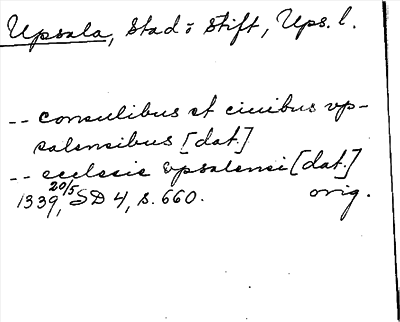 Upsala, Stad o Stift, Ups. l.
-- consulibus et ciuibus vp-
salensibus [dat.]
-- ecclesie vpsalensi [dat.]
1339 20/5, SD 4, s. 660. orig.